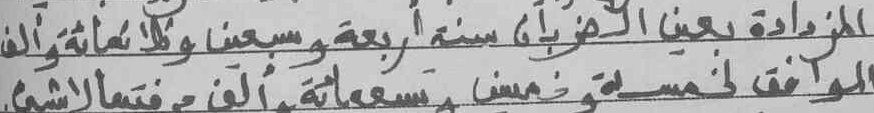 المزدادة بعين الخزبان سنة أربعة وسبعين وثلاثمائة وألف
الموافق لخمسة وخمسين وتسعمائة وألف